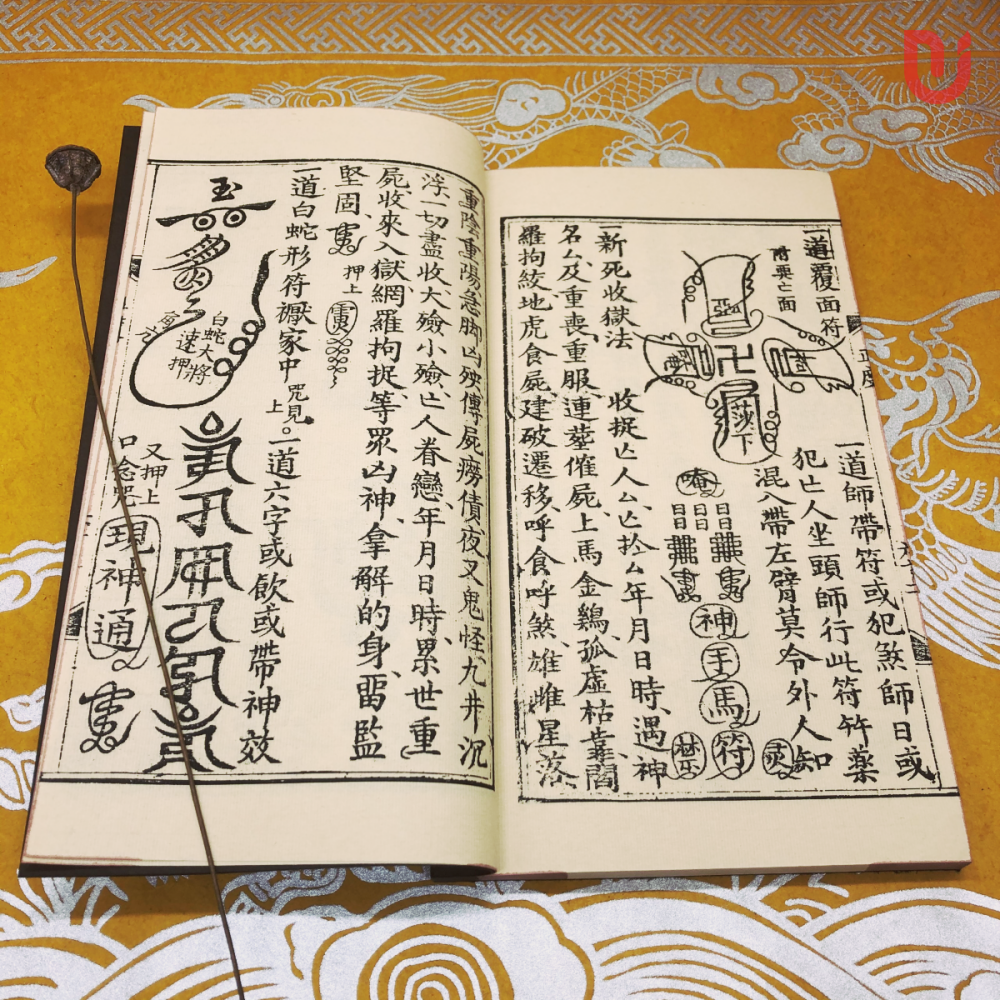 一道覆面符
附票亡面
卍
一道師帶符或犯煞師日或
犯亡人坐頭師行此符竹藥
混入帶左臂莫令外人知
神
手
馬
符
禁
灵
新死收獄法
收捉亡人厶亡於厶年月日時、遇神
名厶及重喪、重服、連塟催屍、上馬金鷄、孤虛枯
羅拘絞、地虎食屍、建破遷移、呼食呼煞、雄雌星落
重陰重陽、急脚凶殃、傳屍癆債、夜叉鬼怪、九井沉
浮、一切盡收、大殮小殮、亡人眷戀、年月日時、累世重
屍、收來入獄、網羅拘捉、等眾凶神、拿解的身、畱監
堅固、
押上
一道白蛇形符禳家中
咒見上。
一道六字或飲或帶神效
玉
白蛇大將
速押
又押上
口念咒
現神通